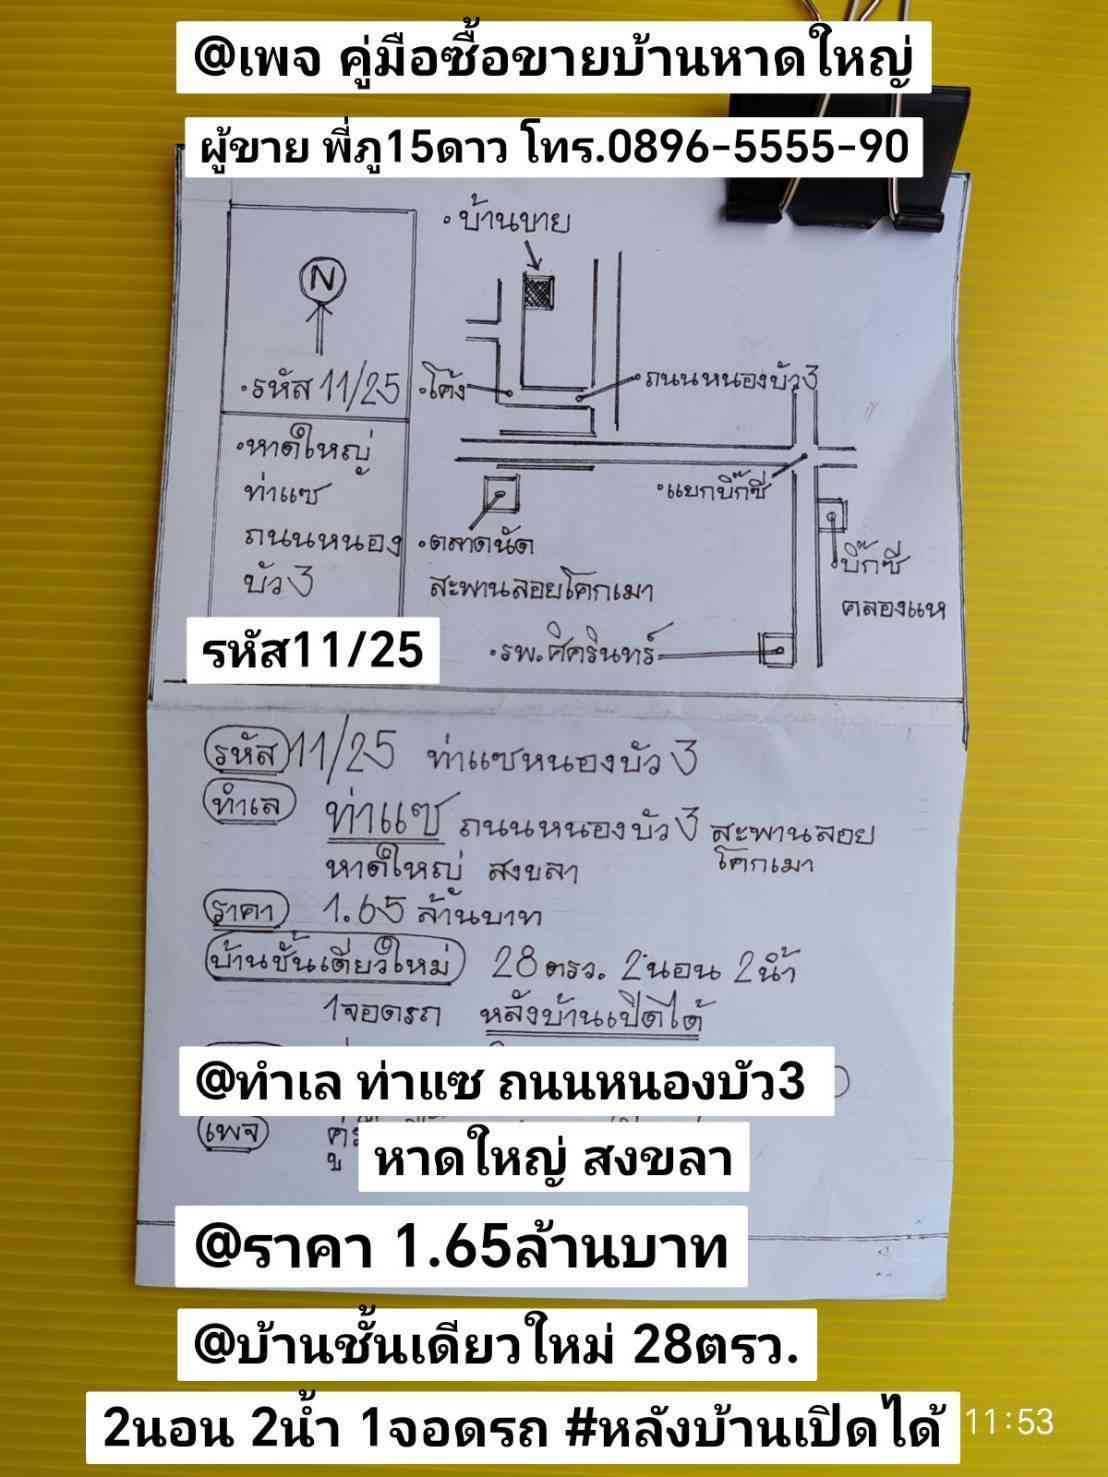 @เพจ คู่มือซื้อขายบ้านหาดใหญ่
ผู้ขาย พี่ภู15ดาว โทร.0896-5555-90
•บ้านขาย
N
•รหัส 11/25
•โค้ง
ถนนหนองบัว3
•หาดใหญ่
ท่าแซ
ถนนหนอง
บัว3
•แยกบิ๊กซี
•ตลาดนัด
สะพานลอยโคกเมา
บิ๊กซี
คลองแห
•รพ.ศิครินทร์
รหัส11/25
รหัส 11/25 ท่าแซหนองบัว 3
ทำเล ท่าแซ ถนนหนองบัว 3 สะพานลอย
โคกเมา
หาดใหญ่ สงขลา
ราคา 1.65 ล้านบาท
บ้านชั้นเดียวใหม่ 28 ตรว. 2นอน 2น้ำ
1จอดรถ หลังบ้านเปิดได้
@ทำเล ท่าแซ ถนนหนองบัว3
เพจ
หาดใหญ่ สงขลา
@ราคา 1.65ล้านบาท
@บ้านชั้นเดียวใหม่ 28ตรว.
2นอน 2น้ำ 1จอดรถ #หลังบ้านเปิดได้
11:53